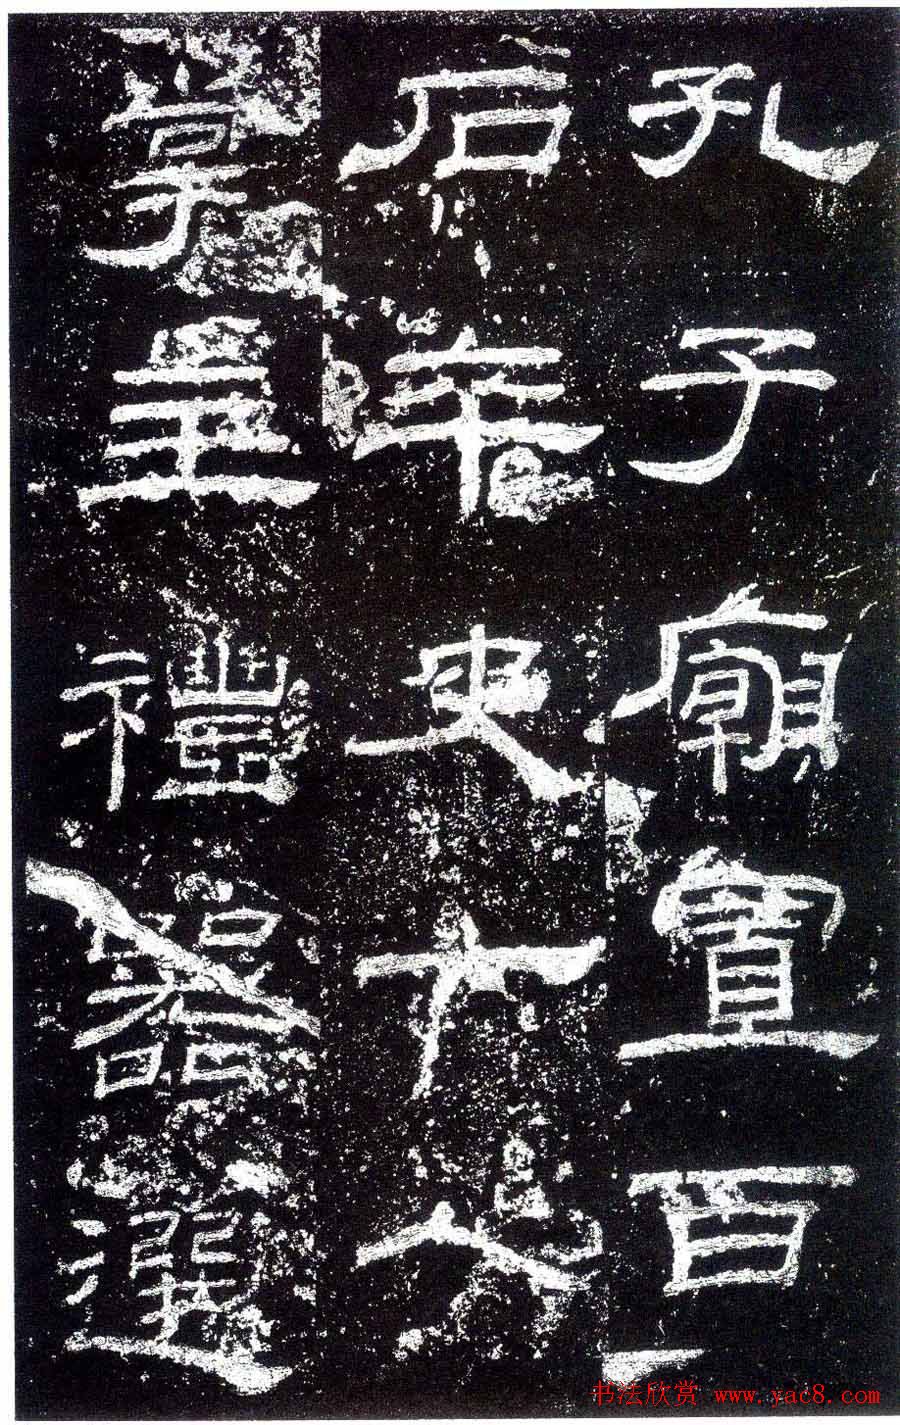 孔子廟置百
石卒史一人
掌主禮器選
书法欣赏 www.yac8.com